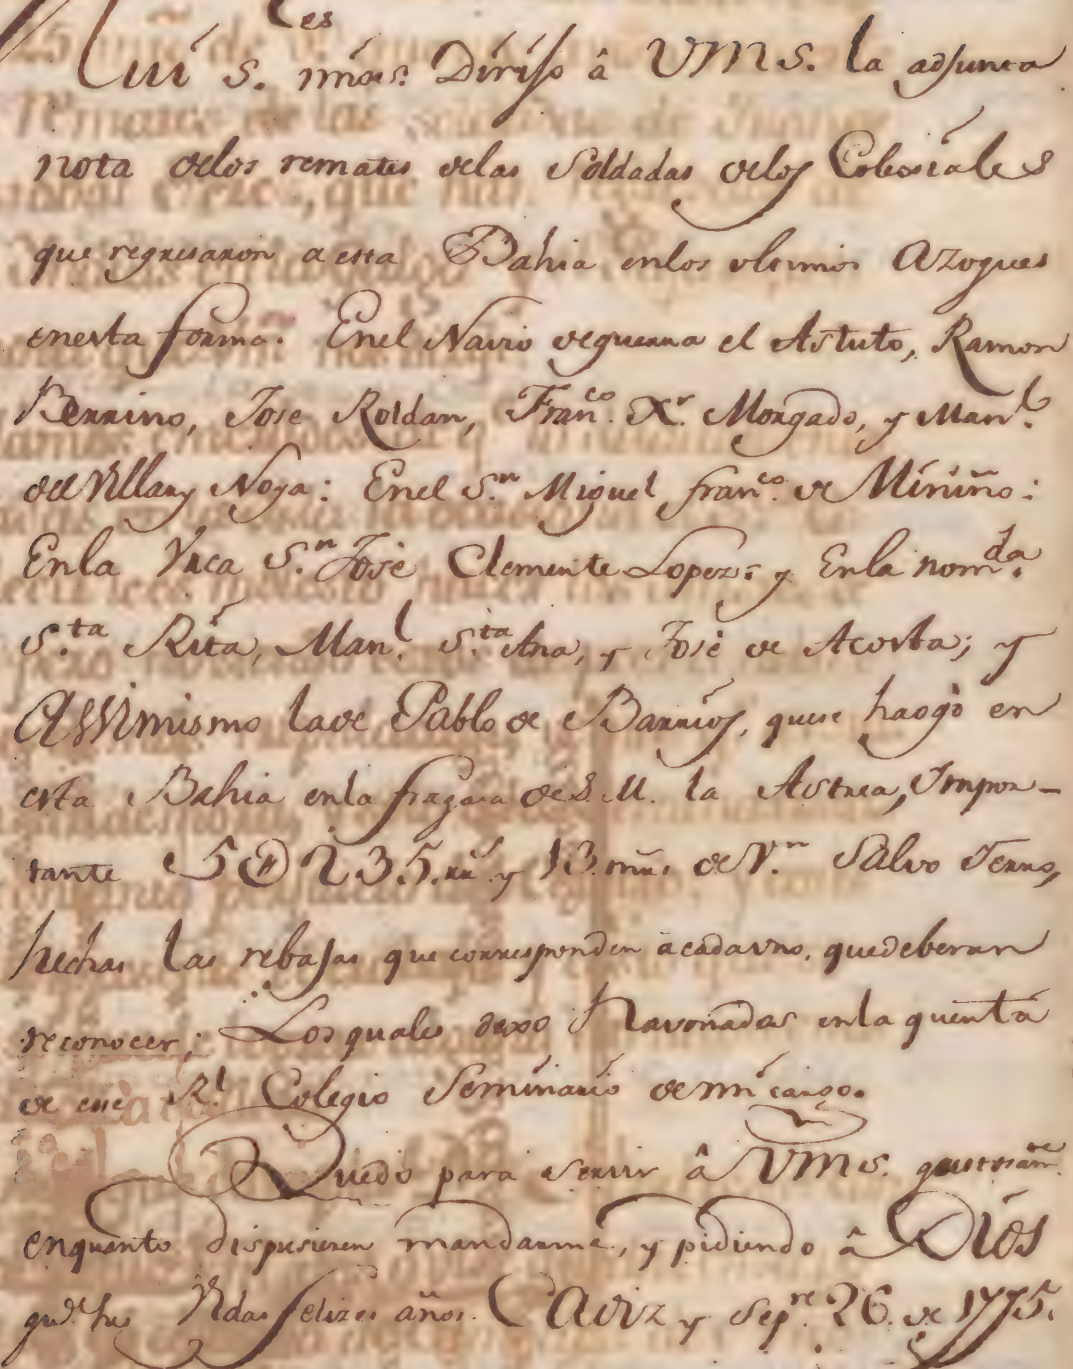 Mui S.res mios: Dirijo â VMS. la adjunta
nota delos remates delas Soldadas delos Colegiales
que regresaron a esta Bahia enlos ultimos Azogues
enesta forma. Enel Navio deguerra el Astuto, Ramon
Berrino, Jose Roldan, Fran.co X.r Morgado, y Man.l
del Villar y Noya: Enel S.n Miguel fran.co de Miniño:
Enla Urca S.n José Clemente Lopez: y Enla nom.da
S.ta Rita, Man.l S.ta Ana, y José de Acosta; y
Assimismo lade Pablo de Barrios, quese haogò en
esta Bahia enla fragata de S. M. la Astrea, Impor-
tante 5@235.rr.s y 13.mrs de V.n Salvo Yerro,
hechas las rebajas que corresponden acadauno, quedeberan
reconocer; Los quales dexo Havonadas enla quenta
de ese R.l Colegio Seminario demi cargo.
Quedo para servir â VMS. gustosam.te
enquanto dispusieren mandarme, y pidiendo â Dios
gu.de sus Vidas felizes años. Cadiz y Sep.re 26. de 1775.